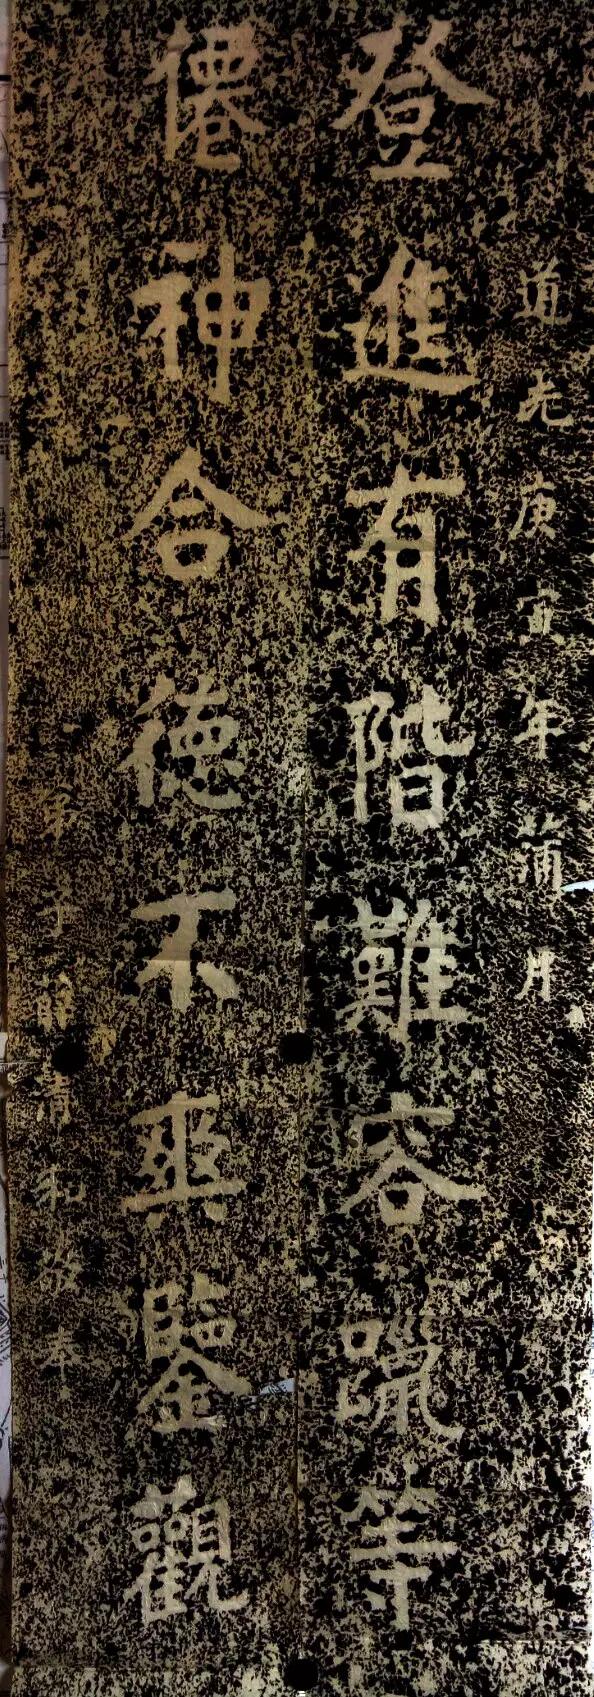 道光庚寅年蒲月
登進有階難容躐等
僊神合德不爽鑒觀
弟子清和敬奉